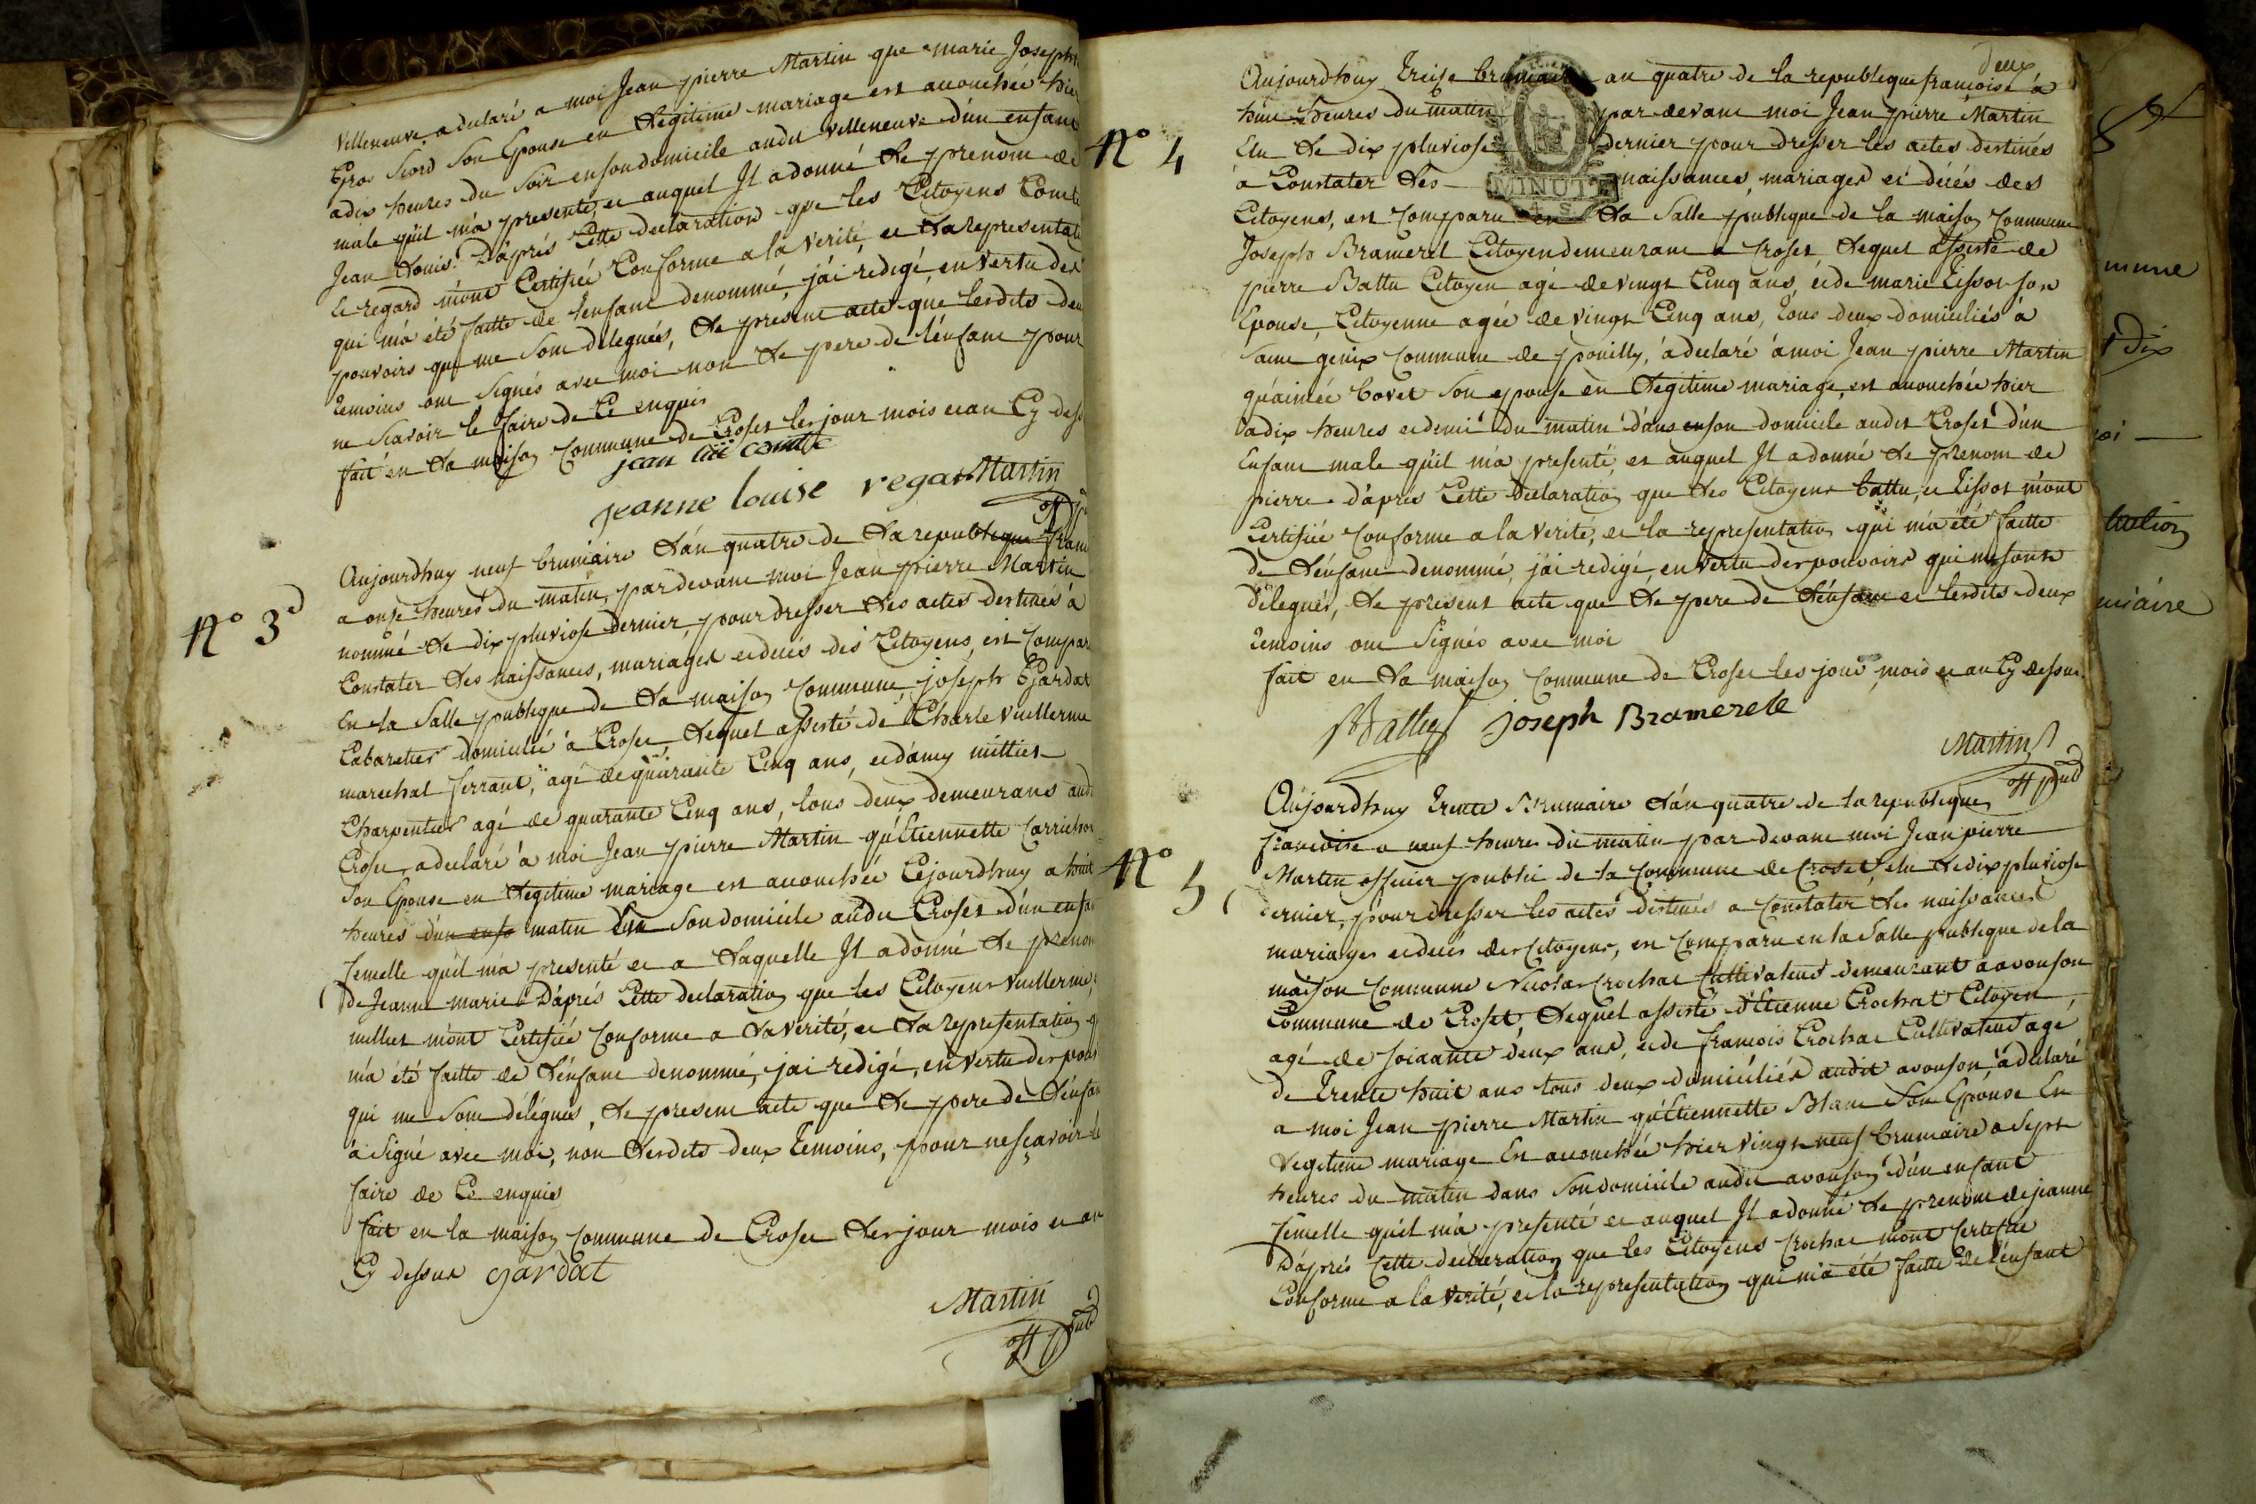 Villeneuve, a declaré a moi Jean pierre Martin que marie Joseph
Gros Son Epouse en Legitime mariage est accouchée hier
a dix heures du Soir en son domicile audit Villeneuve d'un enfant
male qu'il m'a presenté, et auquel Il a donné Le prenom de
Jean Louis. D'aprés Cette declaration que les Citoyens Comte
Et regard m'ont Certifiée Conforme a la Verité, et La representat
qui m'a été faitte de l'enfant denommé, j'ai redigé, en Vertu des
pouvoirs qui me Sont delegués, Le present acte que lesdits deu
temoins ont Signés avec moi non Le pere de l'énfant pour
ne Scavoir le faire de Ce enquis
fait en La maison Commune de Croset les jour mois et an Cy dess
jean comte
jeanne louise regar Martin
off p
N° 3
Aujourdhuy neuf brumaire L'án quatre de La republique fran
a onse heures du matin, pardevant moi Jean pierre Martin
nommé Le dix pluviose dernier, pour dresser Les actes destinés a
Constater Les naissances, mariages et decés des Citoyens, est Compar
En La Salle publique de La maison Commune, joseph Gardat
Cabaretier domicilié à Croset, Lequel assisté de Charle Vuillerme
marechal ferrant, agé de quarante Cinq ans, et d'amy millier
Charpentier agé de quarante Cinq ans, tous deux demeurans aud
Croset, a declaré à moi Jean pierre Martin qu'Etiennette Carrichon
Son Epouse en Legitime mariage est accouchée Cejourdhuy a huit
heures d'un enfa matin Son domicile audit Croset d'un enfa
femelle qu'il m'a presenté et a Laquelle Il a donné Le prenom
de Jeanne marie D'aprés Cette declaration que les Citoyens Vuillerme,
millier m'ont Certifiée Conforme a La Verité, et La representation q
m'a été faitte de L'énfant denommé, j'ai redigé, en Vertu des pouv
qui me Sont délégués, Le present acte que Le pere de L'énfan
à Signé avec moi, non Lesdits deux temoins, pour ne sçavoir le
faire de Ce enquis
fait en la maison Commune de Croset Les jour mois et an
Cy dessus gardat
Martin
off pub
deux
N° 4
Aujourdhuy treise brumaire an quatre de la republique françoise à
huit heures du matin par devant moi Jean pierre Martin
Elu Le dix pluviose dernier pour dresser les actes destinés
à Constater Les naissances, mariages et décés des
MINUTE
4 S
Citoyens, est Comparu en La Salle publique de la maison Commune
Joseph Bramerel Citoyen demeurant a Croset, Lequel assisté de
pierre Battu Citoyen agé de vingt Cinq ans, et de marie tissot son
Epouse, Citoyenne agée de vingt Cinq ans, tous deux domiciliés à
Saint genix Commune de pouilly, à declaré à moi Jean pierre Martin
qu'aimée bovet Son epouse en Legitime mariage, est accouchée hier
a dix heures et demi du matin dans enson domicile audit Croset d'un
Enfant male qu'il m'a presenté, et auquel Il a donné Le prenom de
pierre. d'aprés Cette declaration que Les Citoyens battu, et tissot m'ont
Certifiée Conforme a la Verité, et la representation qui m'a été faitte
de L'énfant denommé, j'ai redigé, en Vertu des pouvoirs qui me sont
délegués, Le present acte que Le pere de L'énfant et lesdits deux
temoins ont Signés avec moi
fait en La maison Commune de Croset les jour mois et an Cy dessus.
Battu joseph Bramerele
Martin
off pub
N° 5
Aujourdhuy trente Brumaire L'án quatre de la republique
francoise a neuf heures du matin par devant moi Jean pierre
Martin officier public de la Commune de Croset, elu Le dix pluviose
dernier, pour dresser les actes destinés a Constater Les naissances
mariages et decés des Citoyens, est Comparu en la Salle publique de la
maison Commune Nicolas Crochat Cultivateur demeurant a avouson
Commune de Croset, Lequel assisté d'Etienne Crochat Citoyen,
agé de soixante deux ans, et de francois Crochat Cultivateur agé
de trente huit ans tous deux domiciliés audit avouson, a declaré
a moi Jean pierre Martin qu'Etiennette Blanc Son Epouse En
Legitime mariage Est accouchée hier vingt neuf brumaire a Sept
heures du matin dans Son domicile audit avouson d'un enfant
femelle qu'il m'a presenté et auquel Il a donné Le prenom de jeanne
D'aprés Cette declaration que les Citoyens Crochat m'ont Certifiée
Conforme a la Verité, et la representation qui m'a été faitte de l'énfant
mune
dix
moi
tution
miaire